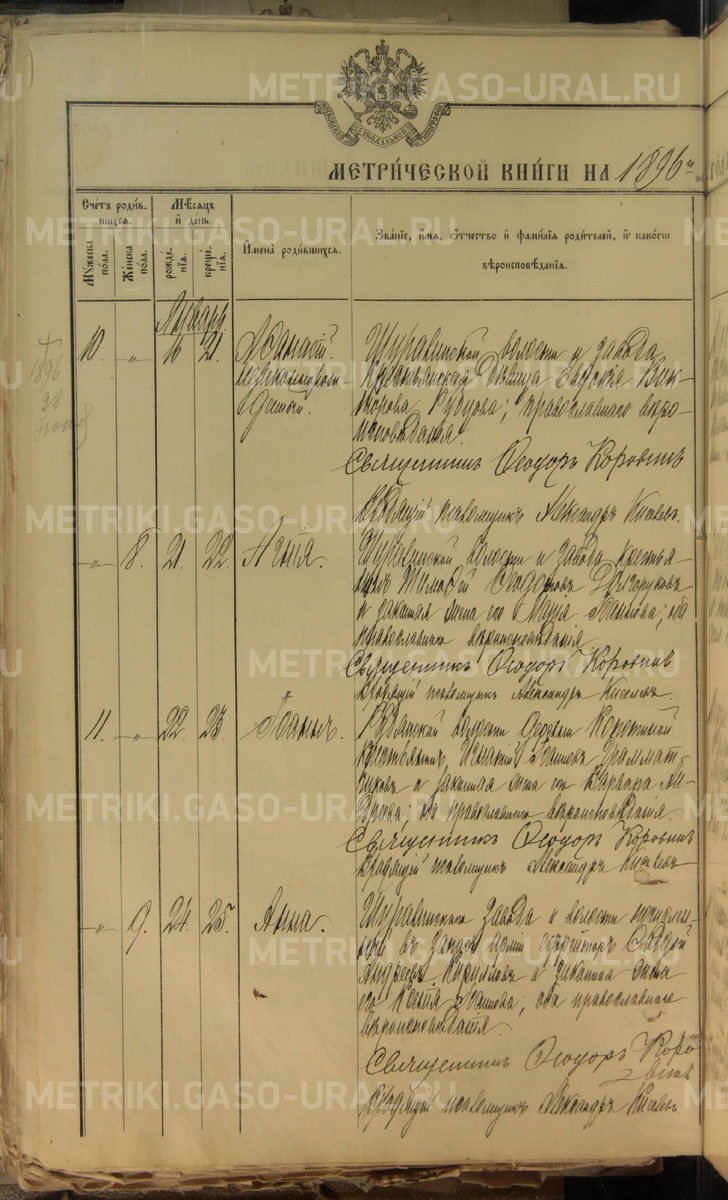 METRIKI.GASO-URAL.RU
МОСКОВСКОЙ СУНОДАЛЬНОЙ ТИПОГРАФІИ
МЕТРИ́ЧЕСКОЙ КНИ́ГИ НА 1896 й
Сче́тъ роди́в-
шихся.
Мꙋ́жеска по́ла.
Же́нска по́ла.
Мѣ́сяцъ
и҆ де́нь
рожде́нїя.
креще́нїя.
И҆мена̀ роди́вшихся.
Зва́нїе, и҆́мя, ѻ҆́тчество и҆ фами́лїя роди́телей, и҆ како́гѡ
вѣроисповѣ́данїя.
Январь
10. " 16 21. Аѳанасій.
незаконнорож-
денный.
Шуравинской волости и завода
крестьянская дѣвица Евдокія Вик-
торова Рубцова; православнаго вѣро-
исповѣданія.
Священникъ Ѳеодоръ Коровинъ
псаломщикъ Александръ Киселевъ.
1896
28
" 8. 21. 22. Агнія.
Шуравинской волости и завода крестья-
нинъ Тимоѳей Долгоруковъ
и законная жена его Марія; оба
православнаго вѣроисповѣданія
Священникъ Ѳеодоръ Коровинъ
псаломщикъ Александръ Киселевъ.
11. " 22. 23. Іоаннъ.
волости деревни
крестьянинъ Игнатій Граммат-
чиковъ и законная жена его Варвара Ан-
дреева; оба православнаго вѣроисповѣданія.
Священникъ Ѳеодоръ Коровинъ
псаломщикъ Александръ Киселевъ
" 9. 24. 25. Анна.
Шуравинскаго завода и волости
въ запасъ арміи ефрейторъ
Андреевъ Кирилловъ и законная жена
его Ксенія; оба православнаго
вѣроисповѣданія.
Священникъ Ѳеодоръ Коро
винъ
псаломщикъ Александръ Киселевъ